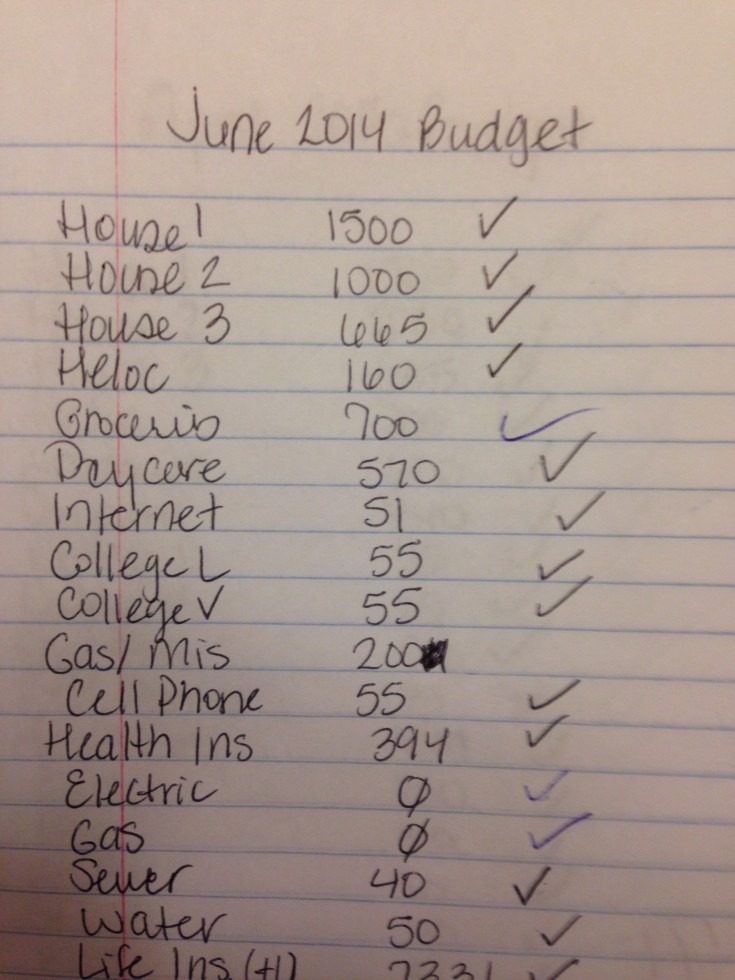 June 2014 Budget
House 1 1500 ✓
House 2 1000 ✓
House 3 665 ✓
Heloc 160 ✓
Groceries 700 ✓
Daycare 570 ✓
Internet 51 ✓
College L 55 ✓
College V 55 ✓
Gas/ Mis 200
Cell Phone 55 ✓
Health Ins 394 ✓
Electric Ø ✓
Gas Ø ✓
Sewer 40 ✓
Water 50 ✓
Life Ins (H) ✓